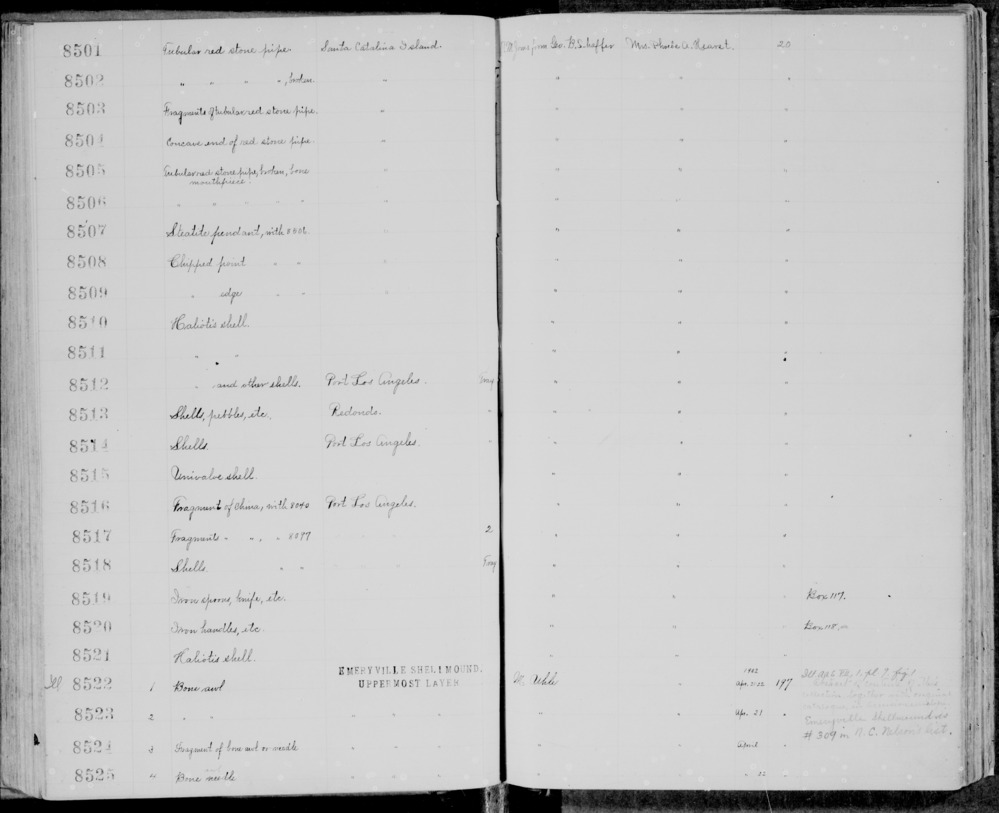 8501 Tubular red stone pipe. Santa Catalina Island. from Geo. B. Shaffer Mrs. Phoebe A. Hearst. 20
8502 " " " ", broken. " " " "
8503 Fragments of tubular red stone pipe. " " " "
8504 Concave end of red stone pipe. " " " "
8505 Tubular red stone pipe, broken, bone " " " "
mouthpiece.
8506 " " " " " " " " "
8507 Steatite pendant, with 8506. " " " "
8508 Chipped point " " " " "
8509 " edge " " " " "
8510 Haliotis shell. " " "
8511 " " " " "
8512 " and other shells. Port Los Angeles. Tray " " "
8513 Shells, pebbles, etc. Redondo. " " " "
8514 Shells. Port Los Angeles. " " " "
8515 Univalve shell. " " "
8516 Fragment of china, with 8040 Port Los Angeles. " " "
8517 Fragments " " " 8077 " " " 2 " " "
8518 Shells. " " " " " Tray " " "
8519 Iron spoons, knife, etc. " " " Box 117.
8520 Iron handles, etc. " " " Box 118.
8521 Haliotis shell. " " "
EMERYVILLE SHELLMOUND.
8522 1 Bone awl UPPERMOST LAYER M. Uhle 1902 Apr. 21-22 197 Ill. 7, fig. 1
8523 2 " " " " " " Apr. 21
Emeryville Shellmound is
# 309 in N. C. Nelson's list.
8524 3 Fragment of bone awl or needle " " " " " April
8525 4 Bone needle " " " " " " 22